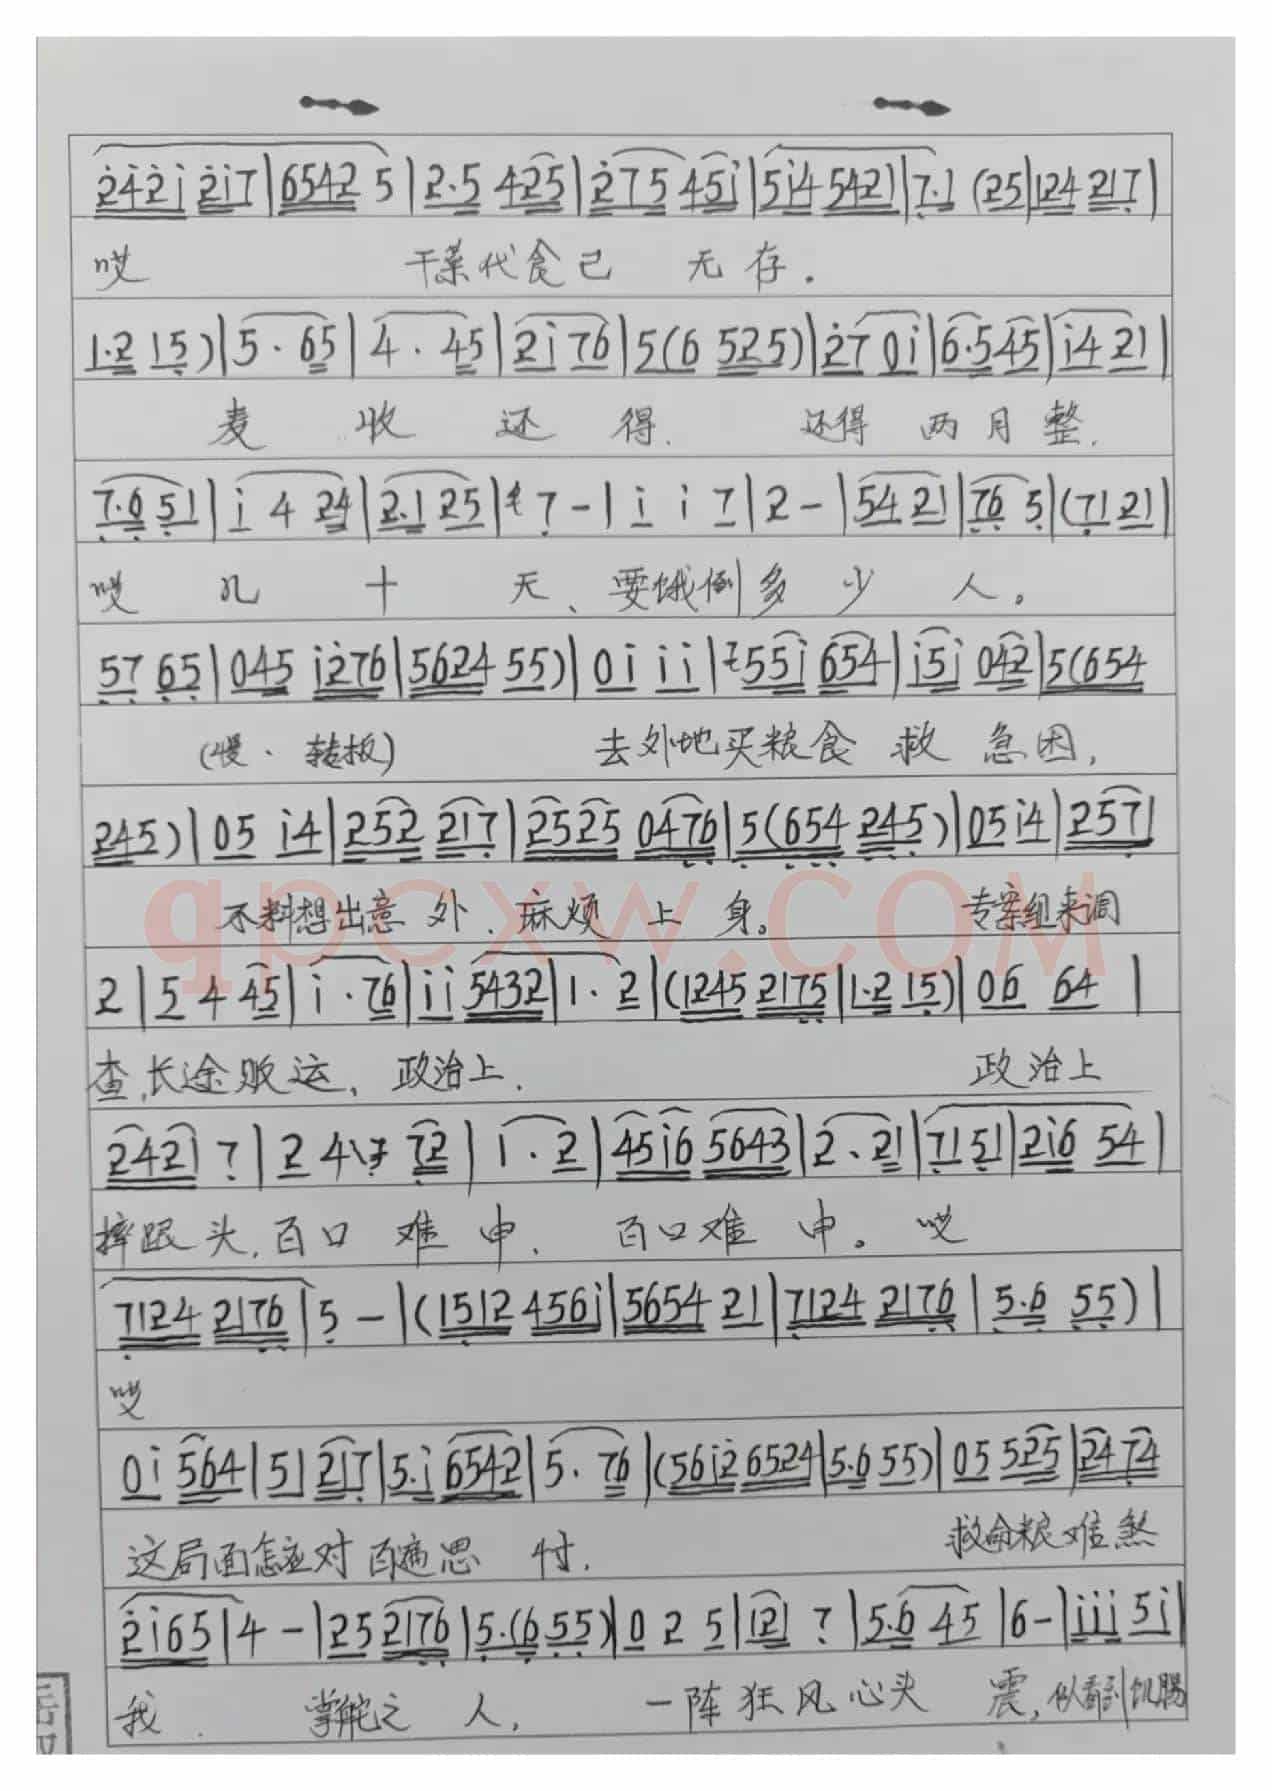 2̇4̇2̇i 2̇i7|6542 5|2·5 425|2̇75 45i|5i4 5421|7·1 (25|124 217|
哎 干菜代食己 无存.
1·2 15)|5·65|4·45|2̇i76|5(6 525)|2̇7 0i|6·545|i4 21|
麦 收 还 得. 还得 两月整.
7·651|i 4 24|2·1 25|7-|i i 7|2-|54 21|76 5|(71 21|
哎 几 十 天、要饿倒多少 人。
57 65|045 i2̇76|5624 55)|0i ii|55i 654|i5i 042|5(654
(慢·转板) 去外地买粮食 救 急困,
245)|05 i4|252 217|2525 0476|5(654 245)|05i4|2571
不料想出意 外、麻烦 上 身。 专案组来调
2|5 4 45|i·76|ii 5432|1·2|(1245 2175|1·2 15)|06 64|
查,长途贩运、政治上. 政治上
2421 7|2 4 72|1·2|45i6 5643|2·21|7151|2i6 54|
摔跟头,百口 难 申. 百口难 申。哎
7124 2176|5-|(1512 456i|5654 21|7124 2176|5·6 55)|
哎
0i 564|51 217|5·i 6542|5·76|(56i2̇ 6524|5·6 55)|05 525|2474
这局面怎应对 百遍思 忖. 救命粮难煞
2̇i65|4-|25 2176|5·(6 55)|0 2 5|121 7|5·6 45|6-|iii 5i|
我. 掌舵之 人, 一阵狂风心头 震,似看到饥肠
qpcxw.com